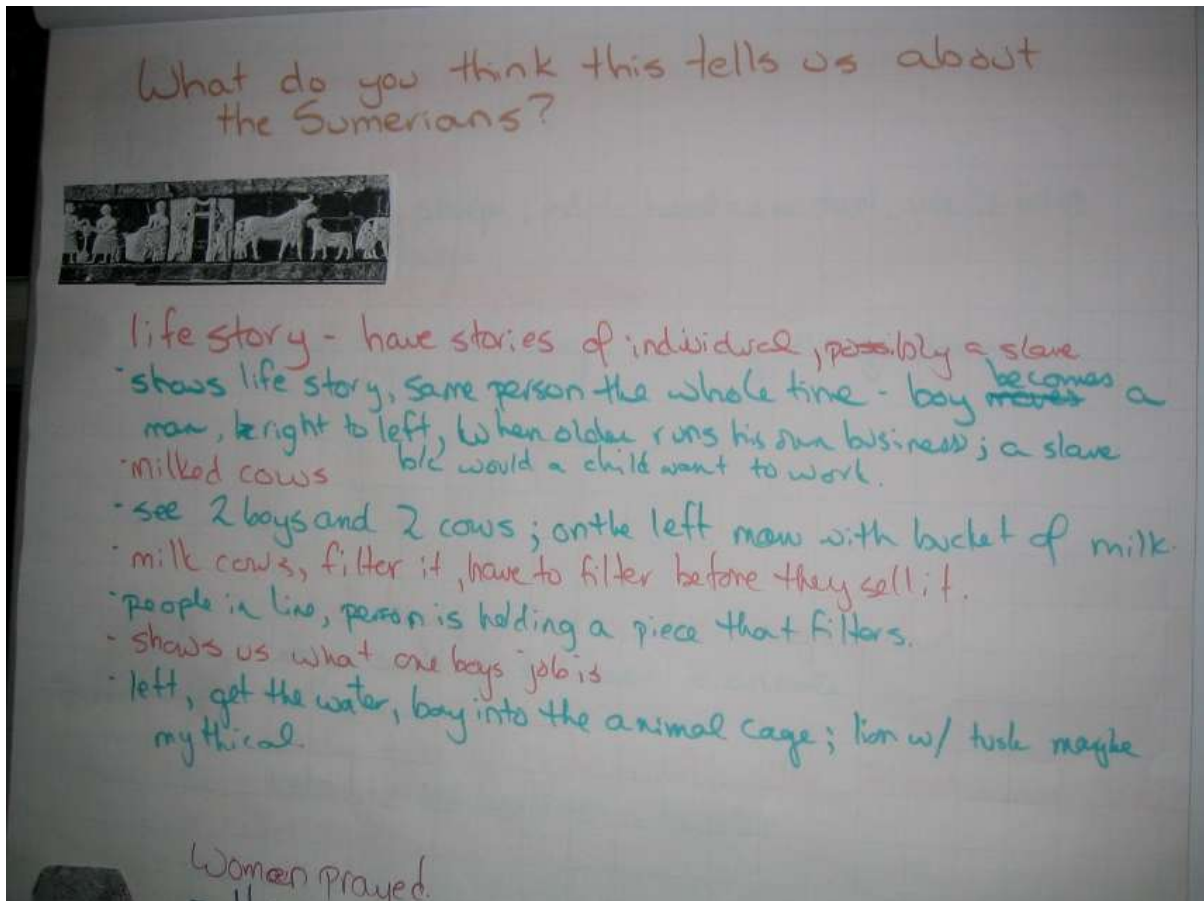 What do you think this tells us about
the Sumerians?
life story - have stories of individual, possibly a slave
·shows life story, same person the whole time - boy becomes a
man, right to left, When older runs his own business; a slave
b/c would a child want to work.
·milked cows
·see 2 boys and 2 cows; on the left man with bucket of milk.
·milk cows, filter it, have to filter before they sell it.
·people in line, person is holding a piece that filters.
- shows us what one boys job is
·left, get the water, boy into the animal cage; lion w/ tusk maybe
mythical.
Women prayed.